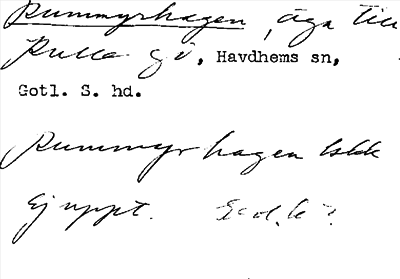 Rummyrhagen, äga till
Kulla gd, Havdhems sn,
Gotl. S. hd.
Rummyrhagen
Ej uppt.